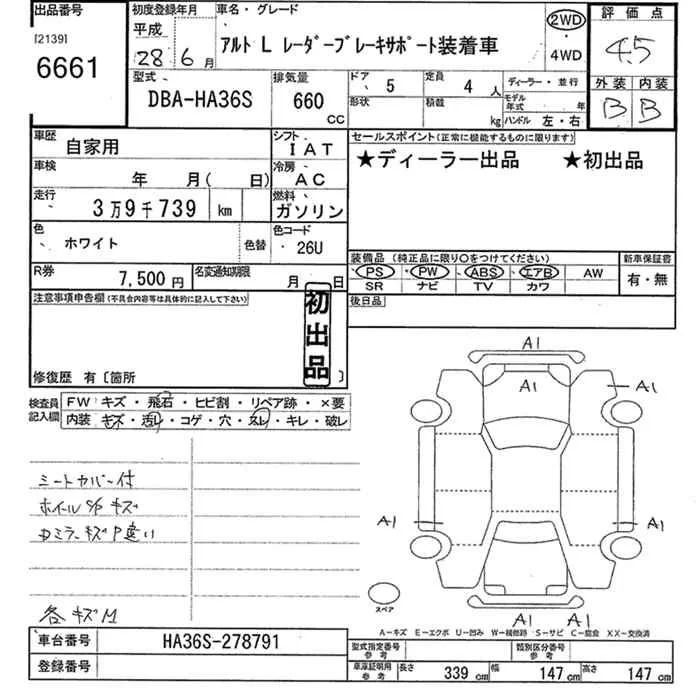 出品番号
[2139]
6661
初度登録年月
平成
28年 6月
車名・グレード
アルト L レーダーブレーキサポート装着車
2WD
・
4WD
評価点
4.5
外装 内装
B B
型式
DBA-HA36S
排気量
660
CC
ドア 5
定員 4 人
形状
積載 kg
ディーラー・並行
モデル年式 年
ハンドル 左・右
車歴 自家用
シフト IAT
車検 年 月( 日)
冷房 AC
走行 3万9千739 km
燃料 ガソリン
色 ホワイト 色替
色コード 26U
R券 7,500円
名変通知期限 月 日
セールスポイント(正常に機能するものに限ります)
★ディーラー出品 ★初出品
装備品(純正品に限り○をつけてください)
新車保証書
PS PW ABS エアB AW
SR ナビ TV カワ
有・無
後日品
注意事項申告欄(不具合内容等は具体的に記入して下さい)
初出品
修復歴 有〔箇所 〕
検査員記入欄
FW キズ・飛石・ヒビ割・リペア跡・×要
内装 キズ・汚レ・コゲ・穴・スレ・キレ・破レ
シートカバー付
ホイールS/P キズ
各キズM
A1
A1 A1
A1 A1
A1 A1
スペア
A−キズ E−エクボ U−凹み W−補修跡 S−サビ C−腐食 XX−交換済
車台番号 HA36S-278791
登録番号
型式指定番号 参考
類別区分番号 参考
車庫証明用 参考 長さ 339cm 幅 147cm 高さ 147cm